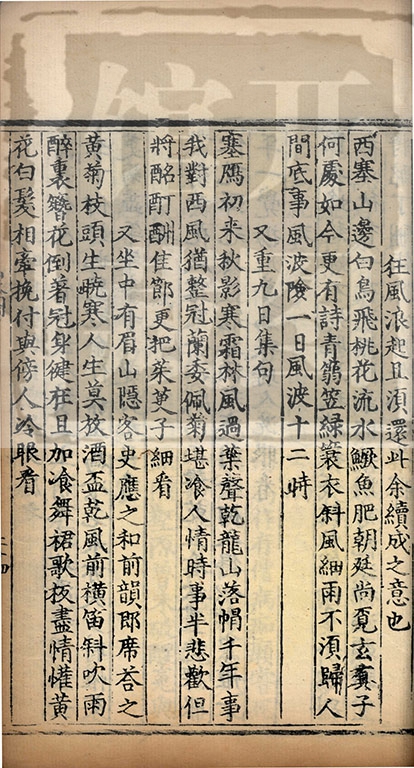 狂風浪起且湏還此余續成之意也
西塞山邊白鳥飛桃花流水鱖魚肥朝廷尚覓玄真子
何處如今更有詩青篛笠綠蓑衣斜風細雨不湏歸人
間底事風波險一日風波十二時
又重九日集句
塞鴈初來秋影寒霜林風過葉聲乾龍山落帽千年事
我對西風猶整冠蘭委佩菊堪飡人情時事半悲歡但
將酩酊酬佳節更把茱萸子細看
又坐中有眉山隱客史應之和前韻即席荅之
黃菊枝頭生曉寒人生莫放酒盃乾風前橫笛斜吹雨
醉裏簪花倒著冠身健在且加飡舞裙歌板盡情懽黃
花白髮相牽挽付與傍人冷眼看